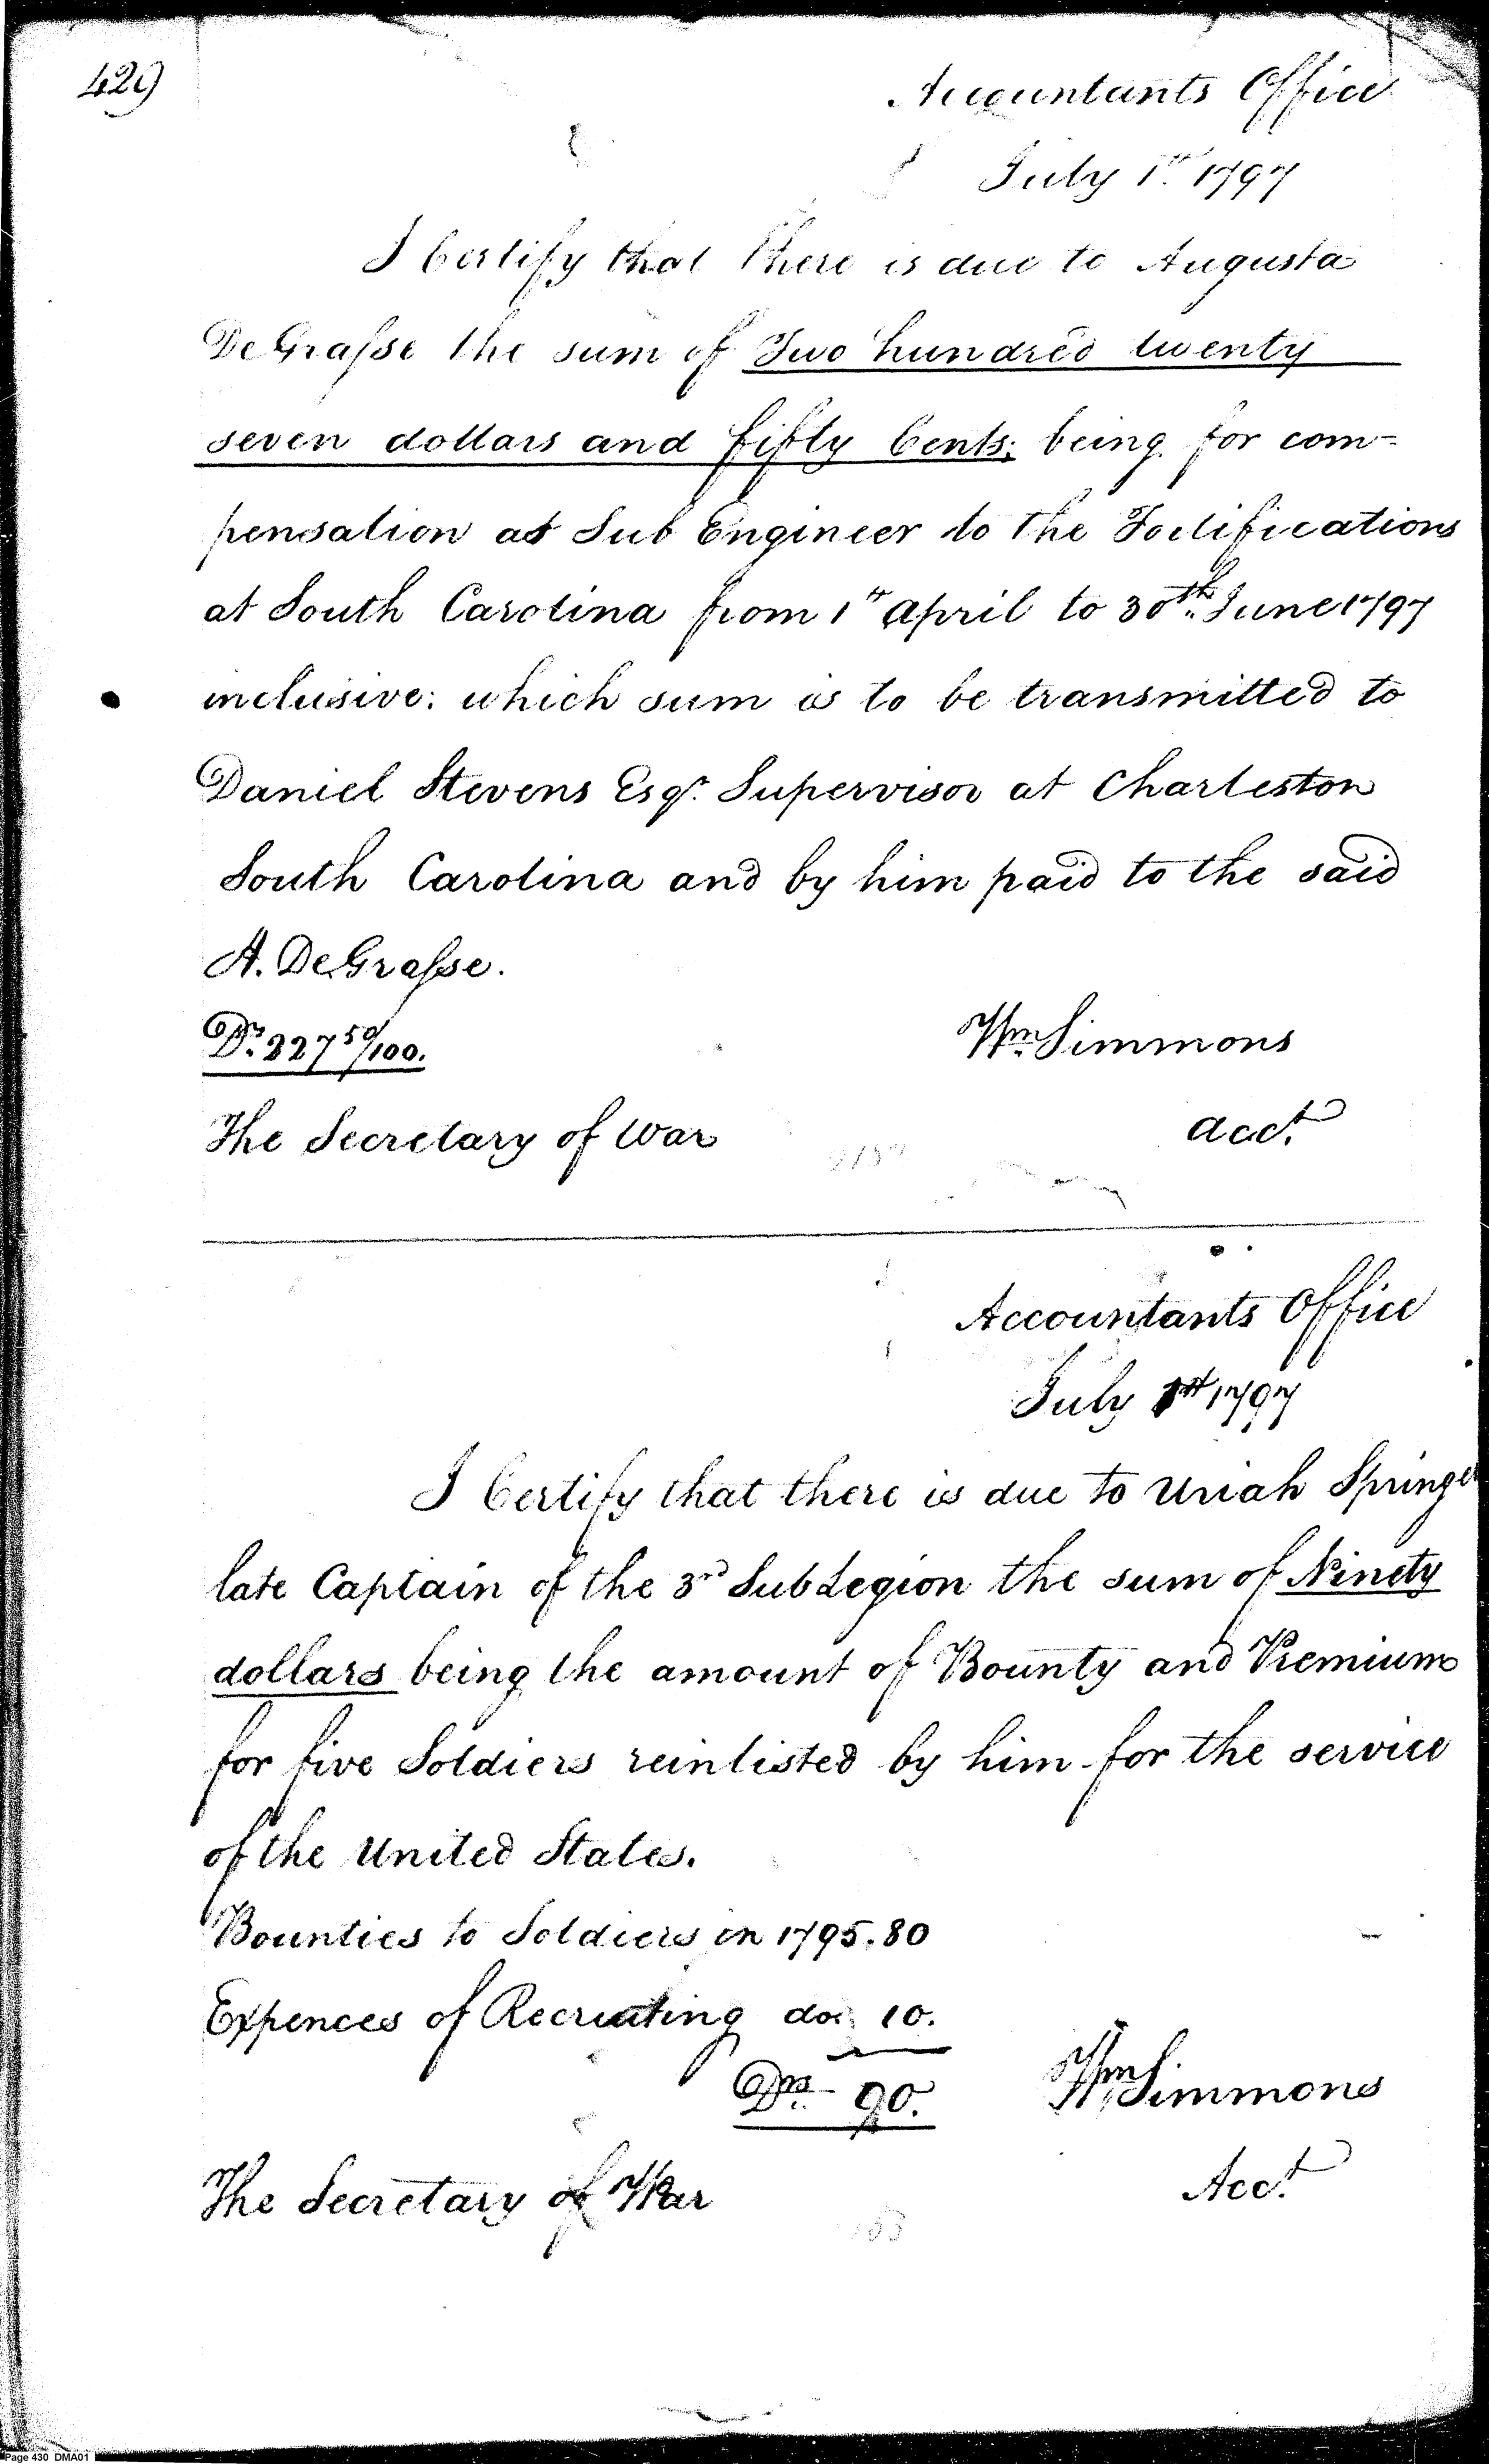 429
Accountants Office
July 1st 1797
I Certify that there is due to Augusta
DeGrasse the sum of Two hundred twenty
seven dollars and fifty Cents; being for com=
pensation as Sub Engineer to the Fortifications
at South Carolina from 1st April to 30th June 1797
inclusive: which sum is to be transmitted to
Daniel Stevens Esqr. Supervisor at Charleston
South Carolina and by him paid to the said
A. DeGrasse.
Drs. 227 50/100.
Wm Simmons
Acct.
The Secretary of War
Accountants Office
July 1st 1797
I Certify that there is due to Uriah Springer
late Captain of the 3rd SubLegion the sum of Ninety
dollars being the amount of Bounty and Premiums
for five Soldiers reinlisted by him for the service
of the United States.
Bounties to Soldiers in 1795. 80
Expences of Recruiting do. 10.
Drs. 90.
Wm Simmons
Acct.
The Secretary of War
Page 430 DMA01